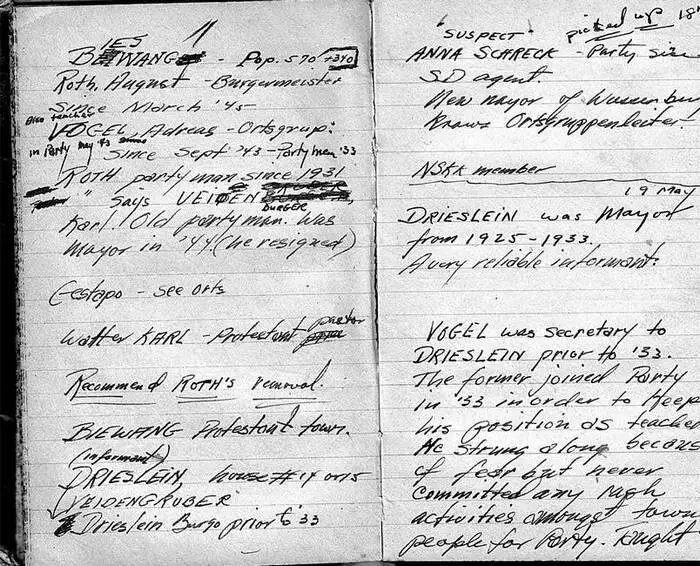 11
BIESWANG - Pop. 570 +340
Roth, August - Burgermeister
Since March '45
Also teacher
VOGEL, Adreas - Ortsgrup:
in Party May '43 Since Sept '43 - Party men '33
ROTH party man since 1931
" Says VEIDEN
BURGER
Karl! Old party man. Was
Mayor in '44 (he resigned)
Gestapo - see orts
Walter KARL - Protestant pastor
Recommend ROTH'S removal.
BIEWANG Protestant town.
(informant)
DRIESLEIN, house #14 or 15
VEIDENGRUBER
Drieslein Burgo prior to '33
"SUSPECT" picked up 18
ANNA SCHRECK - Party since
SD agent.
New mayor of
Knows Ortsgruppenleiter!
NSKK member
19 May
DRIESLEIN was Mayor
from 1925-1933.
A very reliable informant.
VOGEL was secretary to
DRIESLEIN prior to '33.
The former joined Party
in '33 in order to keep
his position as teacher
He strung along becaus
of fear but never
committed any
activities amongst town
people for Party. Taught